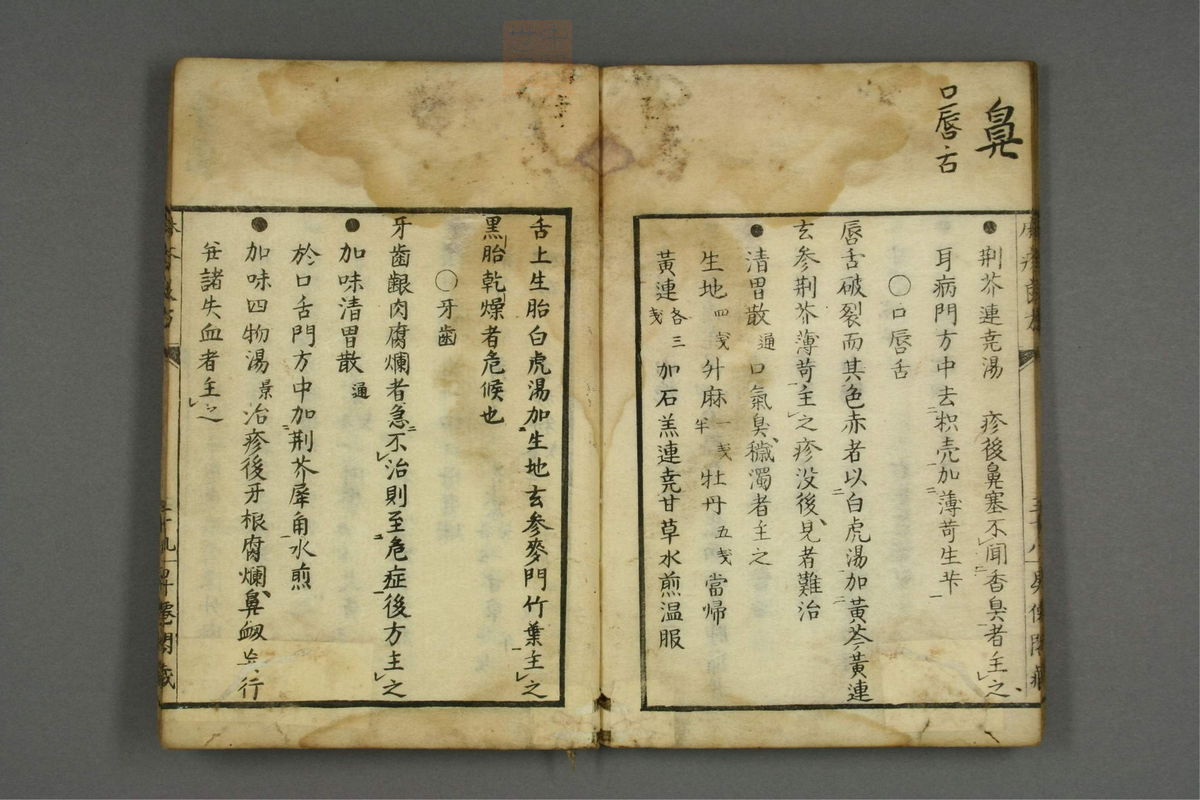 鼻
口唇舌
●荆芥連壳湯 疹後鼻塞不聞香臭者主之
耳病門方中去枳壳加薄苛生芐
○口唇舌
唇舌破裂而其色赤者以白虎湯加黃芩黃連
玄参荆芥薄苛主之疹没後見者難治
●清胃散 通 口氣臭穢濁者主之
生地 四戔 升麻 一戔半 牡丹 五戔 當帰
黃連 各三戔 加石羔連壳甘草水煎温服
舌上生胎白虎湯加生地玄参麥門竹葉主之
黑胎乾燥者危候也
○牙齒
牙齒齦肉腐爛者急不治則至危症後方主之
●加味清胃散 通
於口舌門方中加荆芥犀角水煎
●加味四物湯 景 治疹後牙根腐爛鼻衂並行
諸失血者主之